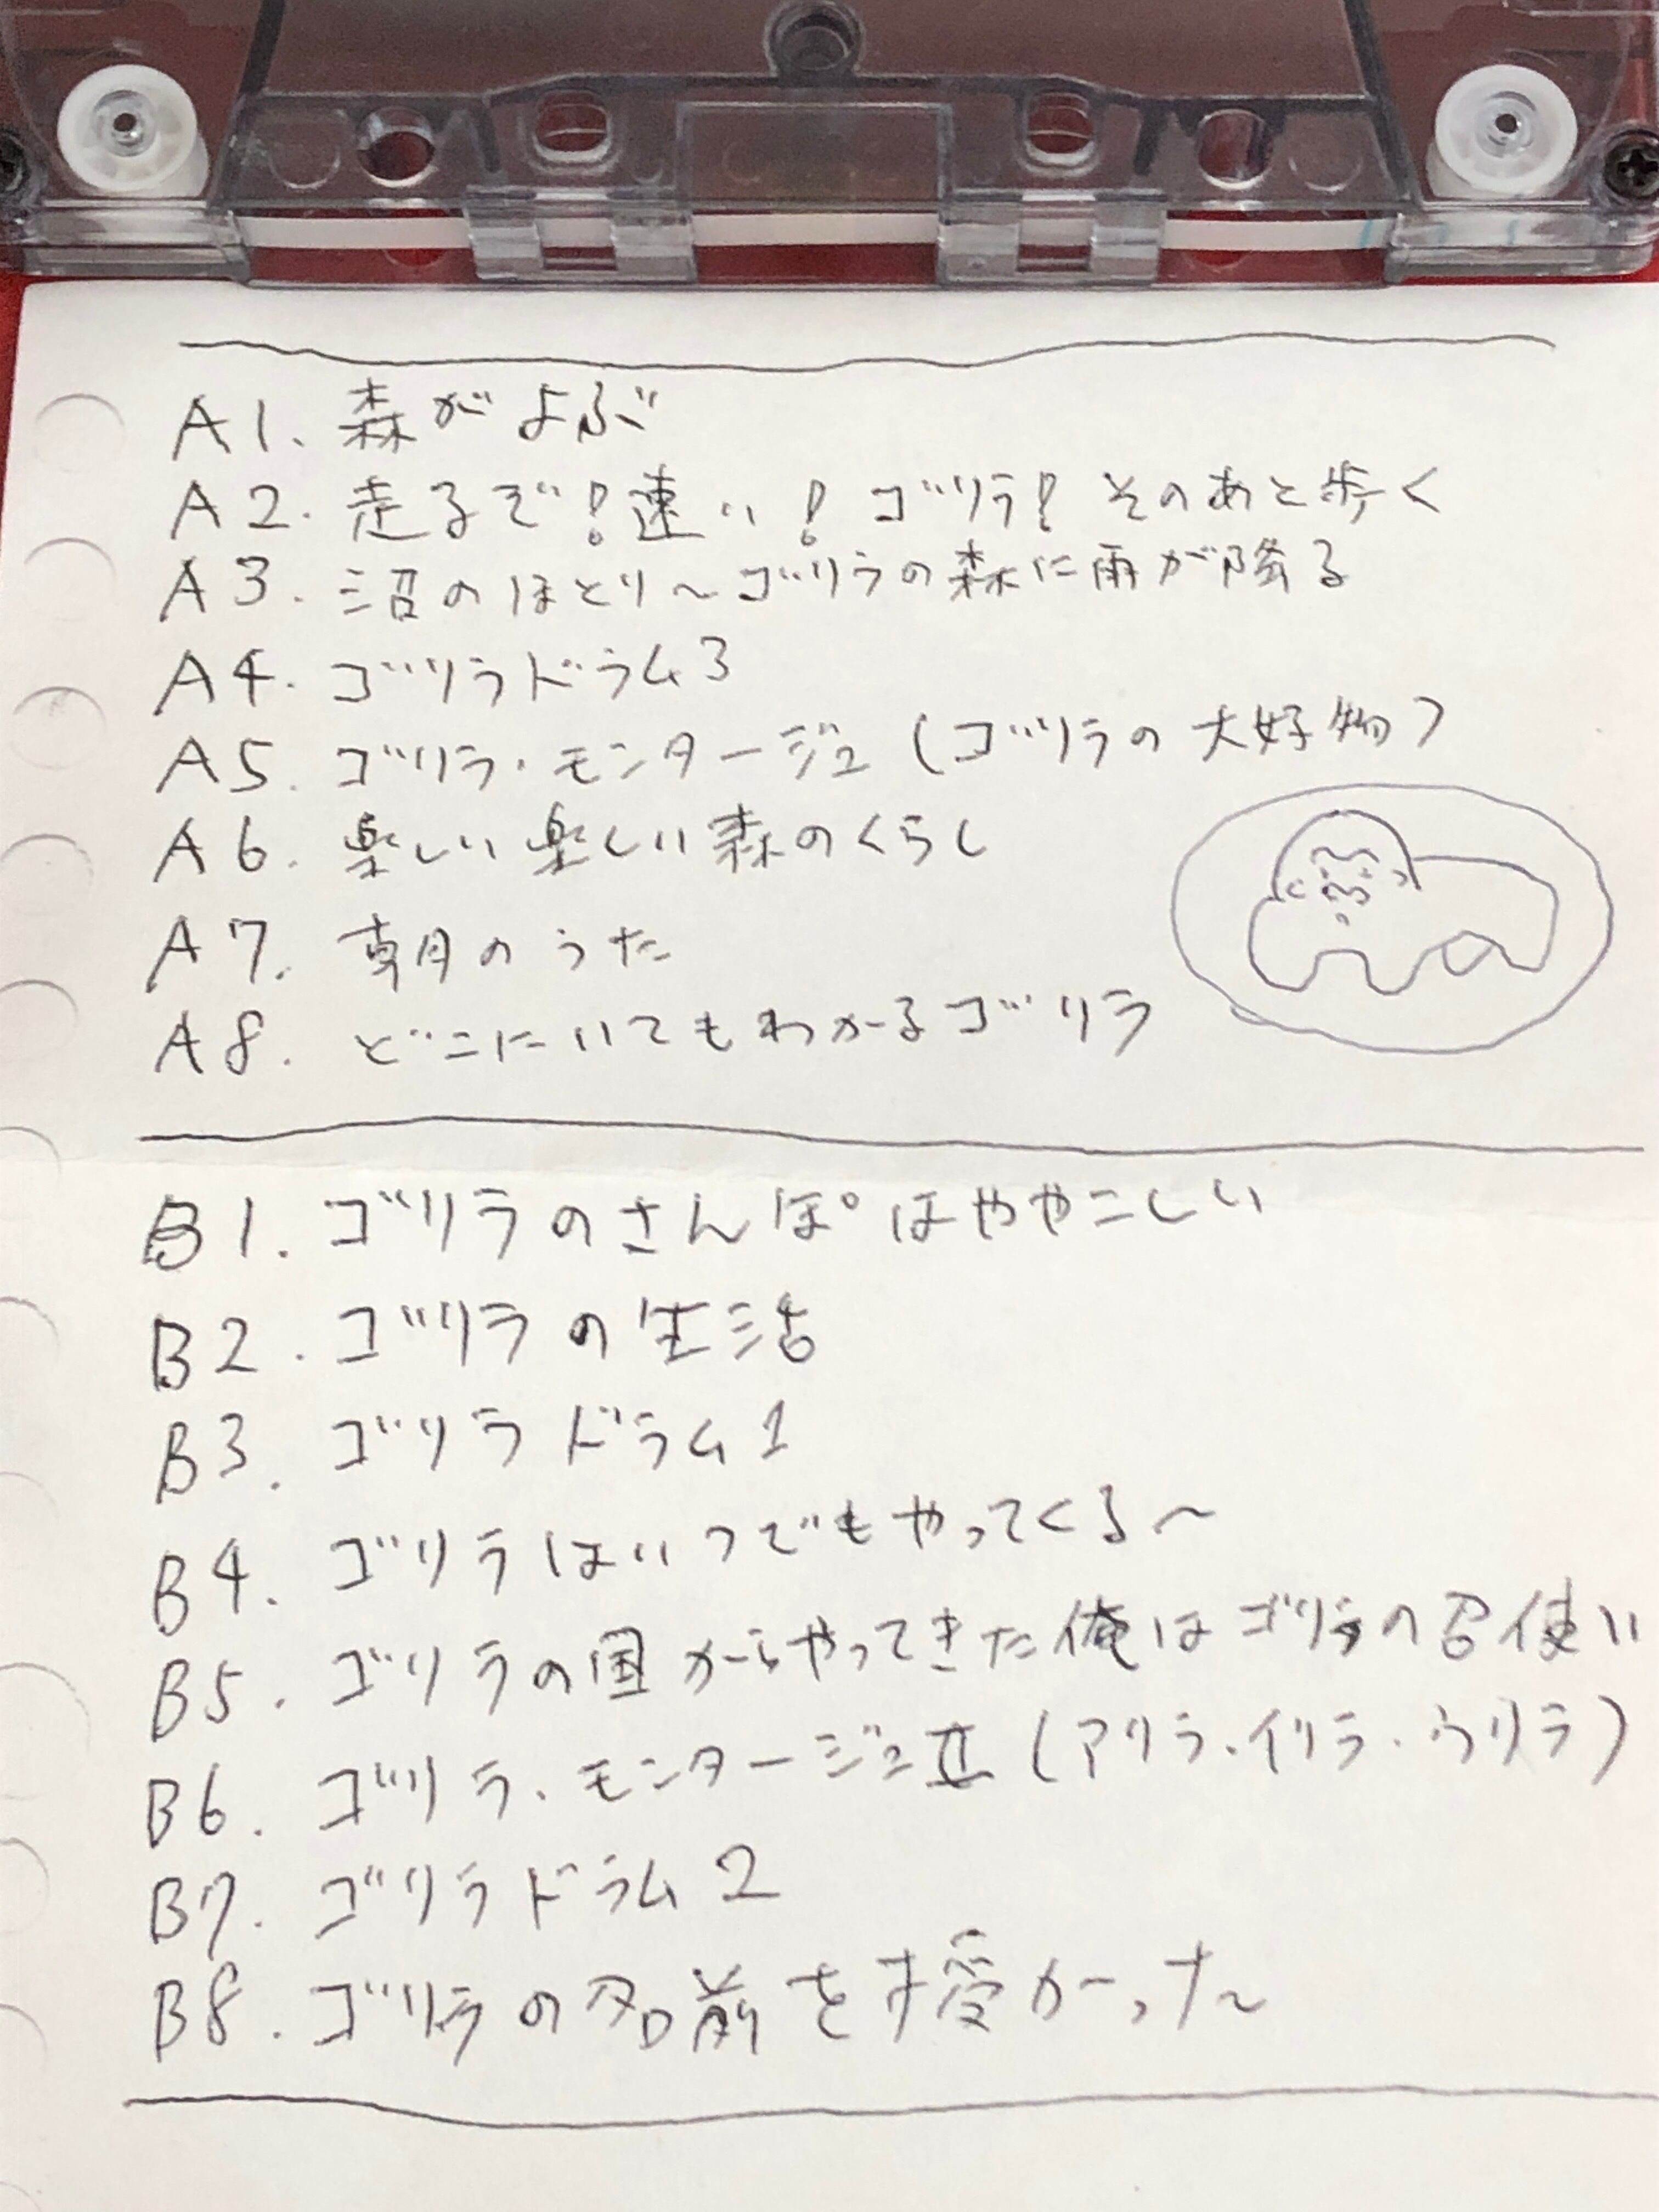 A1. 森がよぶ
A2. 走るぞ!速い!ゴリラ!そのあと歩く
A3. 沼のほとり～ゴリラの森に雨が降る
A4. ゴリラドラム3
A5. ゴリラ・モンタージュ(ゴリラの大好物)
A6. 楽しい楽しい森のくらし
A7. 朝のうた
A8. どこにいてもわかるゴリラ
B1. ゴリラのさんぽはややこしい
B2. ゴリラの生活
B3. ゴリラドラム1
B4. ゴリラはいつでもやってくる～
B5. ゴリラの国からやってきた俺はゴリラの召使い
B6. ゴリラ・モンタージュⅡ(アリラ・イリラ・ウリラ)
B7. ゴリラドラム2
B8. ゴリラの名前を授かった